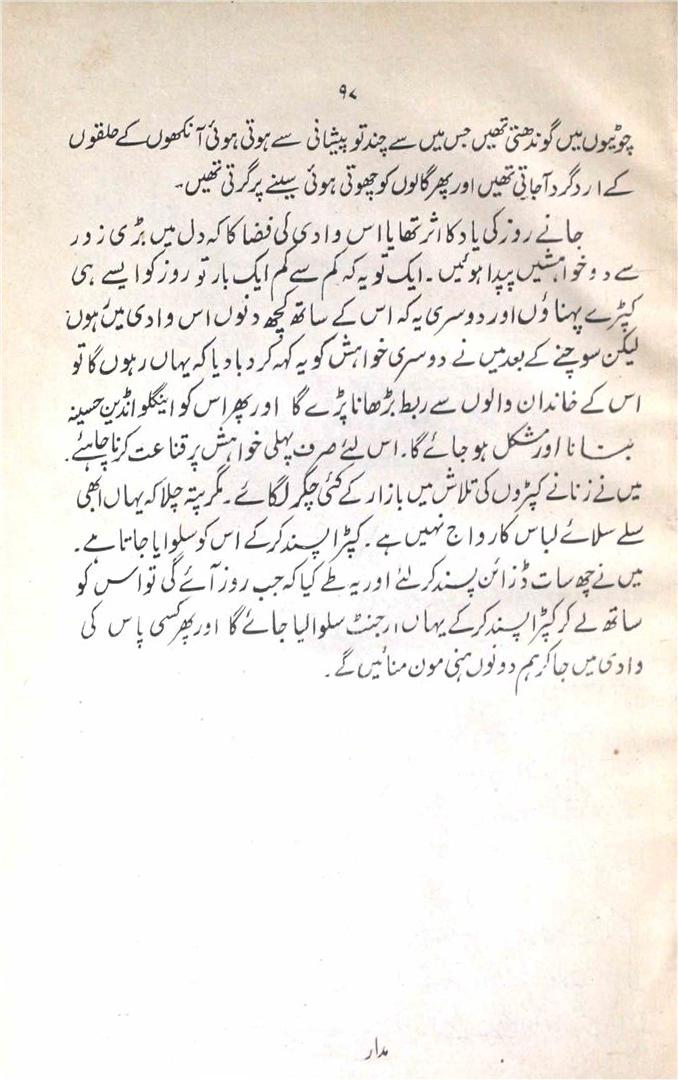 ۹۷
چوٹیوں میں گوندھتی تھیں جس میں سے چند تو پیشانی سے ہوتی ہوئی آنکھوں کے حلقوں
کے ارد گرد آجاتی تھیں اور پھر گالوں کو چھوتی ہوئی سینے پر گرتی تھیں۔
جانے روز کی یاد کا اثر تھا یا اس وادی کی فضا کا کہ دل میں بڑی زور
سے دو خواہشیں پیدا ہوئیں۔ ایک تو یہ کہ کم سے کم ایک بار تو روز کو ایسے ہی
کپڑے پہناؤں اور دوسری یہ کہ اس کے ساتھ کچھ دنوں اس وادی میں رہوں
لیکن سوچنے کے بعد میں نے دوسری خواہش کو یہ کہہ کر دبا دیا کہ یہاں رہوں گا تو
اس کے خاندان والوں سے ربط بڑھانا پڑے گا اور پھر اس کو اینگلو انڈین حسینہ
بنانا اور مشکل ہو جائے گا۔ اس لئے صرف پہلی خواہش پر قناعت کرنا چاہئے۔
میں نے زنانے کپڑوں کی تلاش میں بازار کے کئی چکر لگائے۔ مگر پتہ چلا کہ یہاں ابھی
سلے سلائے لباس کا رواج نہیں ہے۔ کپڑا پسند کر کے اس کو سلوایا جاتا ہے۔
میں نے چھ سات ڈزائن پسند کر لئے اور یہ طے کیا کہ جب روز آئے گی تو اس کو
ساتھ لے کر کپڑا پسند کر کے یہاں ارجنٹ سلوالیا جائے گا اور پھر کسی پاس کی
وادی میں جا کر ہم دونوں ہنی مون منائیں گے۔
مدار